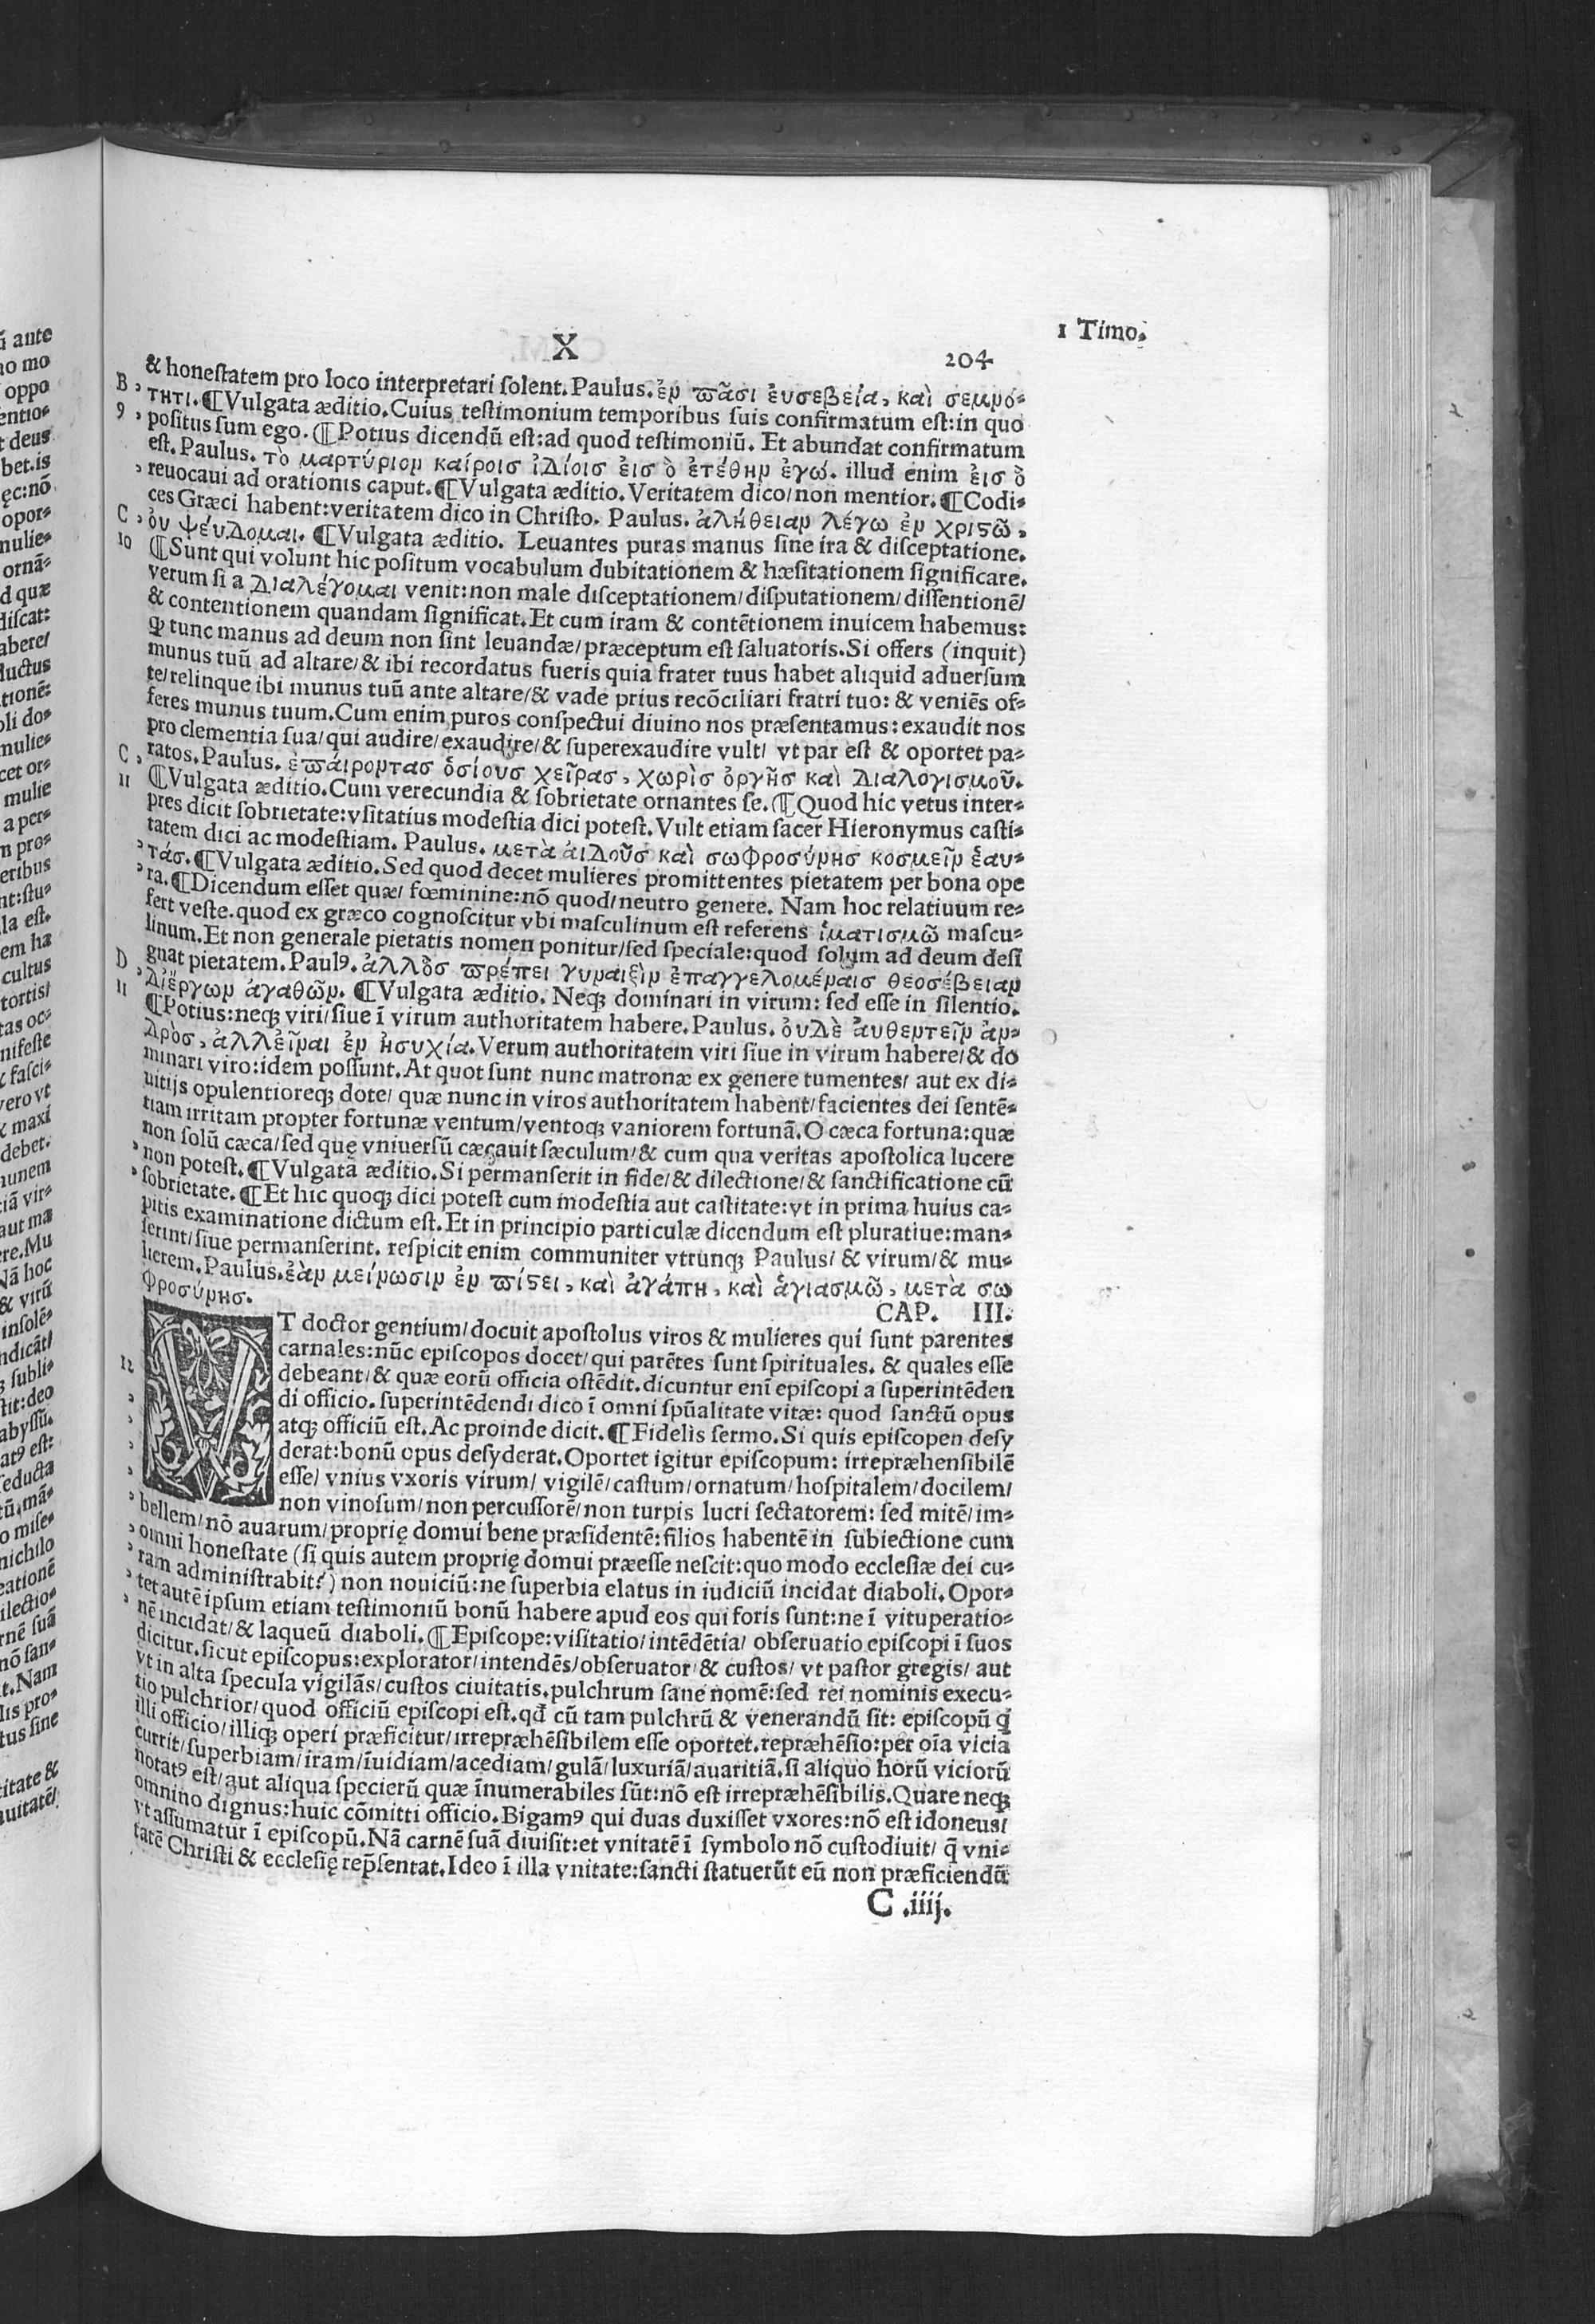 X
204
1 Timo.
& honestatem pro loco interpretari solent. Paulus. ἐν πᾶσι ἐυσεβεία, καὶ σεμνό-
B , τητι. ¶Vulgata æditio. Cuius testimonium temporibus suis confirmatum est: in quo
9 , positus sum ego. ¶Potius dicendū est: ad quod testimoniū. Et abundat confirmatum
est. Paulus. τὸ μαρτύριον καίροισ ἰδίοισ ἐισ ὃ ἐτέθην ἐγώ. illud enim ἐισ ὃ
, reuocaui ad orationis caput. ¶Vulgata æditio. Veritatem dico/ non mentior. ¶Codi-
ces Græci habent: veritatem dico in Christo. Paulus. ἀλήθειαν λέγω ἐν χριϛῶ,
C , ὀυ ψέυδομαι. ¶Vulgata æditio. Leuantes puras manus sine ira & disceptatione.
10 ¶Sunt qui volunt hic positum vocabulum dubitationem & hæsitationem significare.
verum si a διαλέγομαι venit: non male disceptationem/ disputationem/ dissentionē/
& contentionem quandam significat. Et cum iram & contētionem inuicem habemus:
ꝙ tunc manus ad deum non sint leuandæ/ præceptum est saluatoris. Si offers (inquit)
munus tuū ad altare/ & ibi recordatus fueris quia frater tuus habet aliquid aduersum
te/ relinque ibi munus tuū ante altare/ & vade prius recōciliari fratri tuo: & veniēs of-
feres munus tuum. Cum enim puros conspectui diuino nos præsentamus: exaudit nos
pro clementia sua/ qui audire/ exaudire/ & superexaudire vult/ vt par est & oportet pa-
C , ratos. Paulus. ἐπάιροντασ ὁσίουσ χεῖρασ, χωρὶσ ὀργῆσ καὶ διαλογισμοῦ.
11 ¶Vulgata æditio. Cum verecundia & sobrietate ornantes se. ¶Quod hic vetus inter-
pres dicit sobrietate: vsitatius modestia dici potest. Vult etiam sacer Hieronymus casti-
tatem dici ac modestiam. Paulus. μετὰ ἀιδοῦσ καὶ σωφροσύνησ κοσμεῖν ἑαυ-
, τάσ. ¶Vulgata æditio. Sed quod decet mulieres promittentes pietatem per bona ope
, ra. ¶Dicendum esset quæ/ fœminine: nō quod/ neutro genere. Nam hoc relatiuum re-
fert veste. quod ex græco cognoscitur vbi masculinum est referens ἱματισμῶ mascu-
linum. Et non generale pietatis nomen ponitur/ sed speciale: quod solum ad deum desi
D gnat pietatem. Paulꝰ. ἀλλὃσ πρέπει γυναιξὶν ἐπαγγελομέναισ θεοσέβειαν
, διἔργων ἀγαθῶν. ¶Vulgata æditio. Neqꝫ dominari in virum: sed esse in silentio.
11 ¶Potius: neqꝫ viri/ siue ī virum authoritatem habere. Paulus. ὀυδὲ ἀυθεντεῖν ἀν-
δρὸσ, ἀλλεῖναι ἐν ἡσυχία. Verum authoritatem viri siue in virum habere/ & do
minari viro: idem possunt. At quot sunt nunc matronæ ex genere tumentes/ aut ex di-
uitijs opulentioreqꝫ dote/ quæ nunc in viros authoritatem habent/ facientes dei sentē-
tiam irritam propter fortunæ ventum/ ventoqꝫ vaniorem fortunā. O cæca fortuna: quæ
non solū cæca/ sed quę vniuersū cæcauit sæculum/ & cum qua veritas apostolica lucere
, non potest. ¶Vulgata æditio. Si permanserit in fide/ & dilectione/ & sanctificatione cū
, sobrietate. ¶Et hic quoqꝫ dici potest cum modestia aut castitate: vt in prima huius ca-
pitis examinatione dictum est. Et in principio particulæ dicendum est pluratiue: man-
serint/ siue permanserint. respicit enim communiter vtrunqꝫ Paulus/ & virum/ & mu-
lierem. Paulus. ἐὰν μείνωσιν ἐν πίϛει, καὶ ἀγάπη, καὶ ἁγιασμῶ, μετὰ σω
φροσύνησ.
CAP. III.
VT doctor gentium/ docuit apostolus viros & mulieres qui sunt parentes
carnales: nūc episcopos docet/ qui parētes sunt spirituales. & quales esse
12 debeant/ & quæ eorū officia ostēdit. dicuntur enī episcopi a superintēden
di officio. superintēdendi dico ī omni spūalitate vitæ: quod sanctū opus
, atqꝫ officiū est. Ac proinde dicit. ¶Fidelis sermo. Si quis episcopen desy
, derat: bonū opus desyderat. Oportet igitur episcopum: irrepræhensibilē
, esse/ vnius vxoris virum/ vigilē/ castum/ ornatum/ hospitalem/ docilem/
, non vinosum/ non percussorē/ non turpis lucri sectatorem: sed mitē/ im-
, bellem/ nō auarum/ proprię domui bene præsidentē: filios habentē in subiectione cum
, omni honestate (si quis autem proprię domui præesse nescit: quo modo ecclesiæ dei cu-
, ram administrabit?) non nouiciū: ne superbia elatus in iudiciū incidat diaboli. Opor-
, tet autē ipsum etiam testimoniū bonū habere apud eos qui foris sunt: ne ī vituperatio-
, nē incidat/ & laqueū diaboli. ¶Episcope: visitatio/ intēdētia/ obseruatio episcopi ī suos
dicitur. sicut episcopus: explorator/ intendēs/ obseruator/ & custos/ vt pastor gregis/ aut
vt in alta specula vigilās/ custos ciuitatis. pulchrum sane nomē: sed rei nominis execu-
tio pulchrior/ quod officiū episcopi est. qđ cū tam pulchrū & venerandū sit: episcopū q̄
illi officio/ illiqꝫ operi præficitur/ irrepræhēsibilem esse oportet. repræhēsio: per oīa vicia
currit/ superbiam/ iram/ īuidiam/ acediam/ gulā/ luxuriā/ auaritiā. si aliquo horū viciorū
notatꝰ est/ aut aliqua specierū quæ īnumerabiles sūt: nō est irrepræhēsibilis. Quare neqꝫ
omnino dignus: huic cōmitti officio. Bigamꝰ qui duas duxisset vxores: nō est idoneus/
vt assumatur ī episcopū. Nā carnē suā diuisit: et vnitatē ī symbolo nō custodiuit/ q̄ vni-
tatē Christi & ecclesię rep̄sentat. Ideo ī illa vnitate: sancti statuerūt eū non præficiendū
C .iiij.